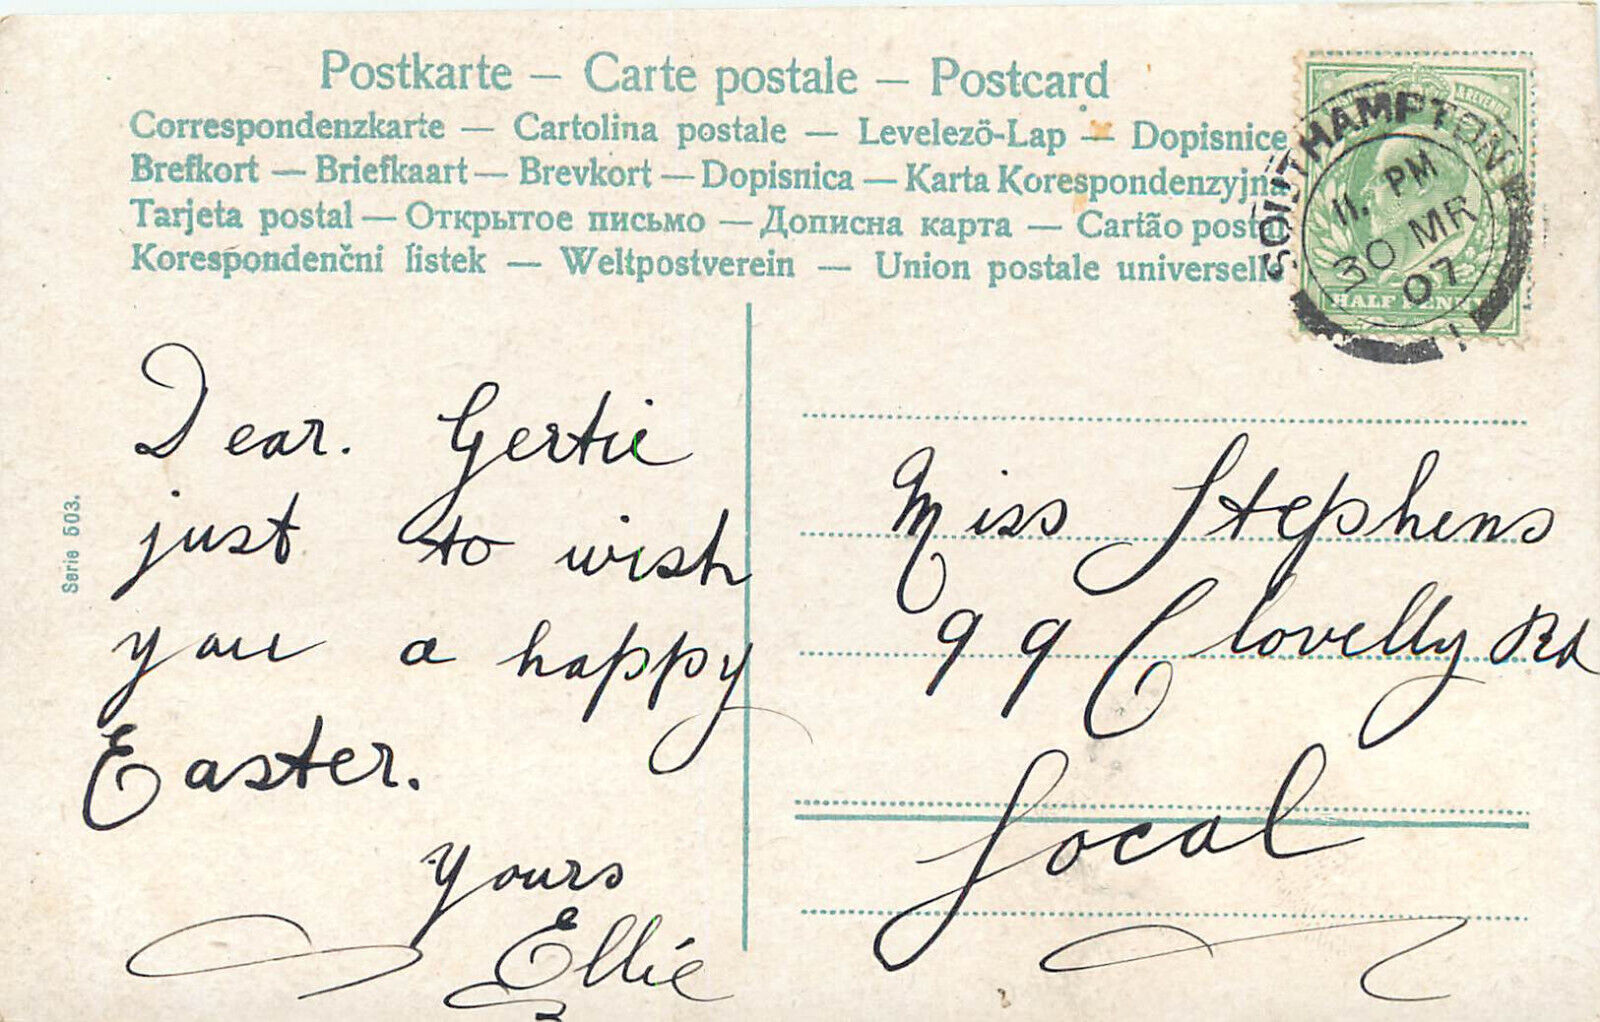 Postkarte – Carte postale – Postcard
Correspondenzkarte — Cartolina postale — Levelezö-Lap — Dopisnice
Brefkort — Briefkaart — Brevkort — Dopisnica — Karta Korespondenzyjna
Tarjeta postal — Открытое письмо — Дописна карта — Cartão postal
Korespondenční lístek — Weltpostverein — Union postale universelle
& REVENUE
HALF PENNY
SOUTHAMPTON
11. PM
30 MR
07
1
Serie 503.
Dear. Gertie
just to wish
you a happy
Easter.
Yours
Ellie
Miss Stephens
99 Clovelly Rd
Local